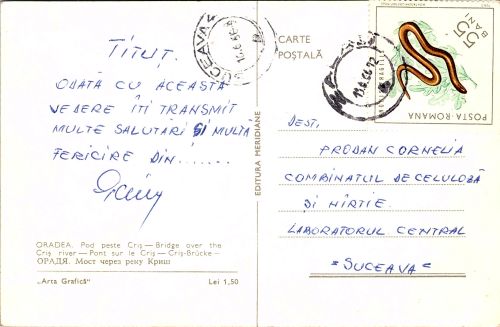 TITUȚ.
ODATĂ CU ACEASTĂ
VEDERE ÎȚI TRANSMIT
MULTE SALUTĂRI ȘI MULTĂ
FERICIRE DIN.......
ORADEA. Pod peste Criș — Bridge over the
Criș river — Pont sur le Criș — Criș-Brücke —
ОРАДЯ. Мост через реку Криш
„Arta Grafică"
Lei 1,50
EDITURA MERIDIANE
SUCEAVA
CARTE
POȘTALĂ
55
BANI
POSTA ROMANA
DEST.
PRODAN CORNELIA
COMBINATUL DE CELULOZĂ
ȘI HÎRTIE.
LABORATORUL CENTRAL
= SUCEAVA =